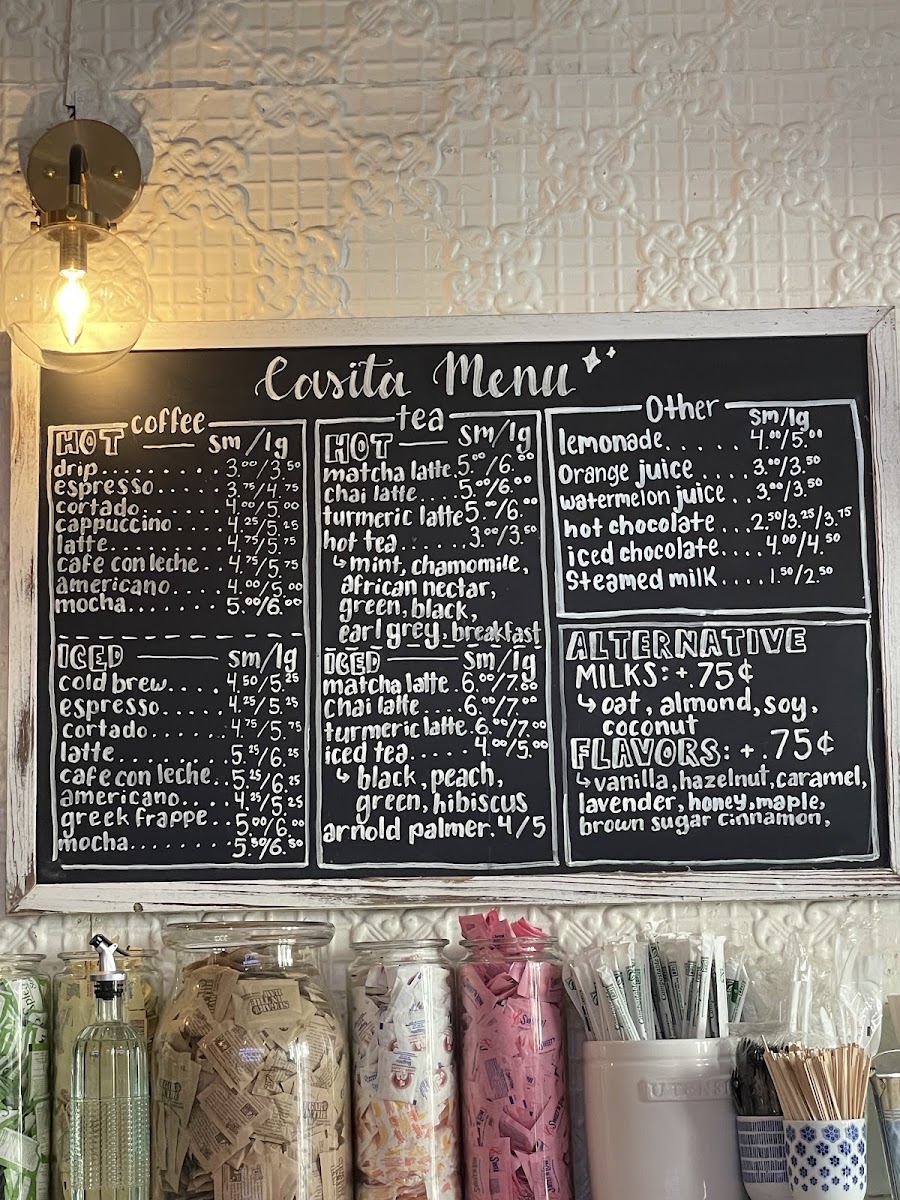 Casita Menu
coffee
HOT — sm/lg
drip........3.00/3.50
espresso.....3.75/4.75
cortado......4.00/5.00
cappuccino....4.25/5.25
latte........4.75/5.75
cafe con leche..4.75/5.75
americano.....4.00/5.00
mocha.......5.00/6.00
ICED — sm/lg
cold brew....4.50/5.25
espresso.....4.25/5.25
cortado......4.75/5.75
latte........5.25/6.25
cafe con leche..5.25/6.25
americano....4.25/5.25
greek frappe..5.00/6.00
mocha........5.50/6.50
tea
HOT — sm/lg
matcha latte.5.00/6.00
chai latte....5.00/6.00
turmeric latte5.00/6.00
hot tea......3.00/3.50
↳mint, chamomile,
african nectar,
green, black,
earl grey, breakfast
ICED — sm/lg
matcha latte.6.00/7.00
chai latte....6.00/7.00
turmeric latte.6.00/7.00
iced tea.....4.00/5.00
↳ black, peach,
green, hibiscus
arnold palmer.4/5
Other
sm/lg
lemonade......4.00/5.00
Orange juice.....3.00/3.50
watermelon juice..3.00/3.50
hot chocolate...2.50/3.25/3.75
iced chocolate....4.00/4.50
Steamed milk....1.50/2.50
ALTERNATIVE
MILKS: + .75¢
↳oat, almond, soy,
coconut
FLAVORS: + .75¢
↳vanilla, hazelnut, caramel,
lavender, honey, maple,
brown sugar cinnamon,